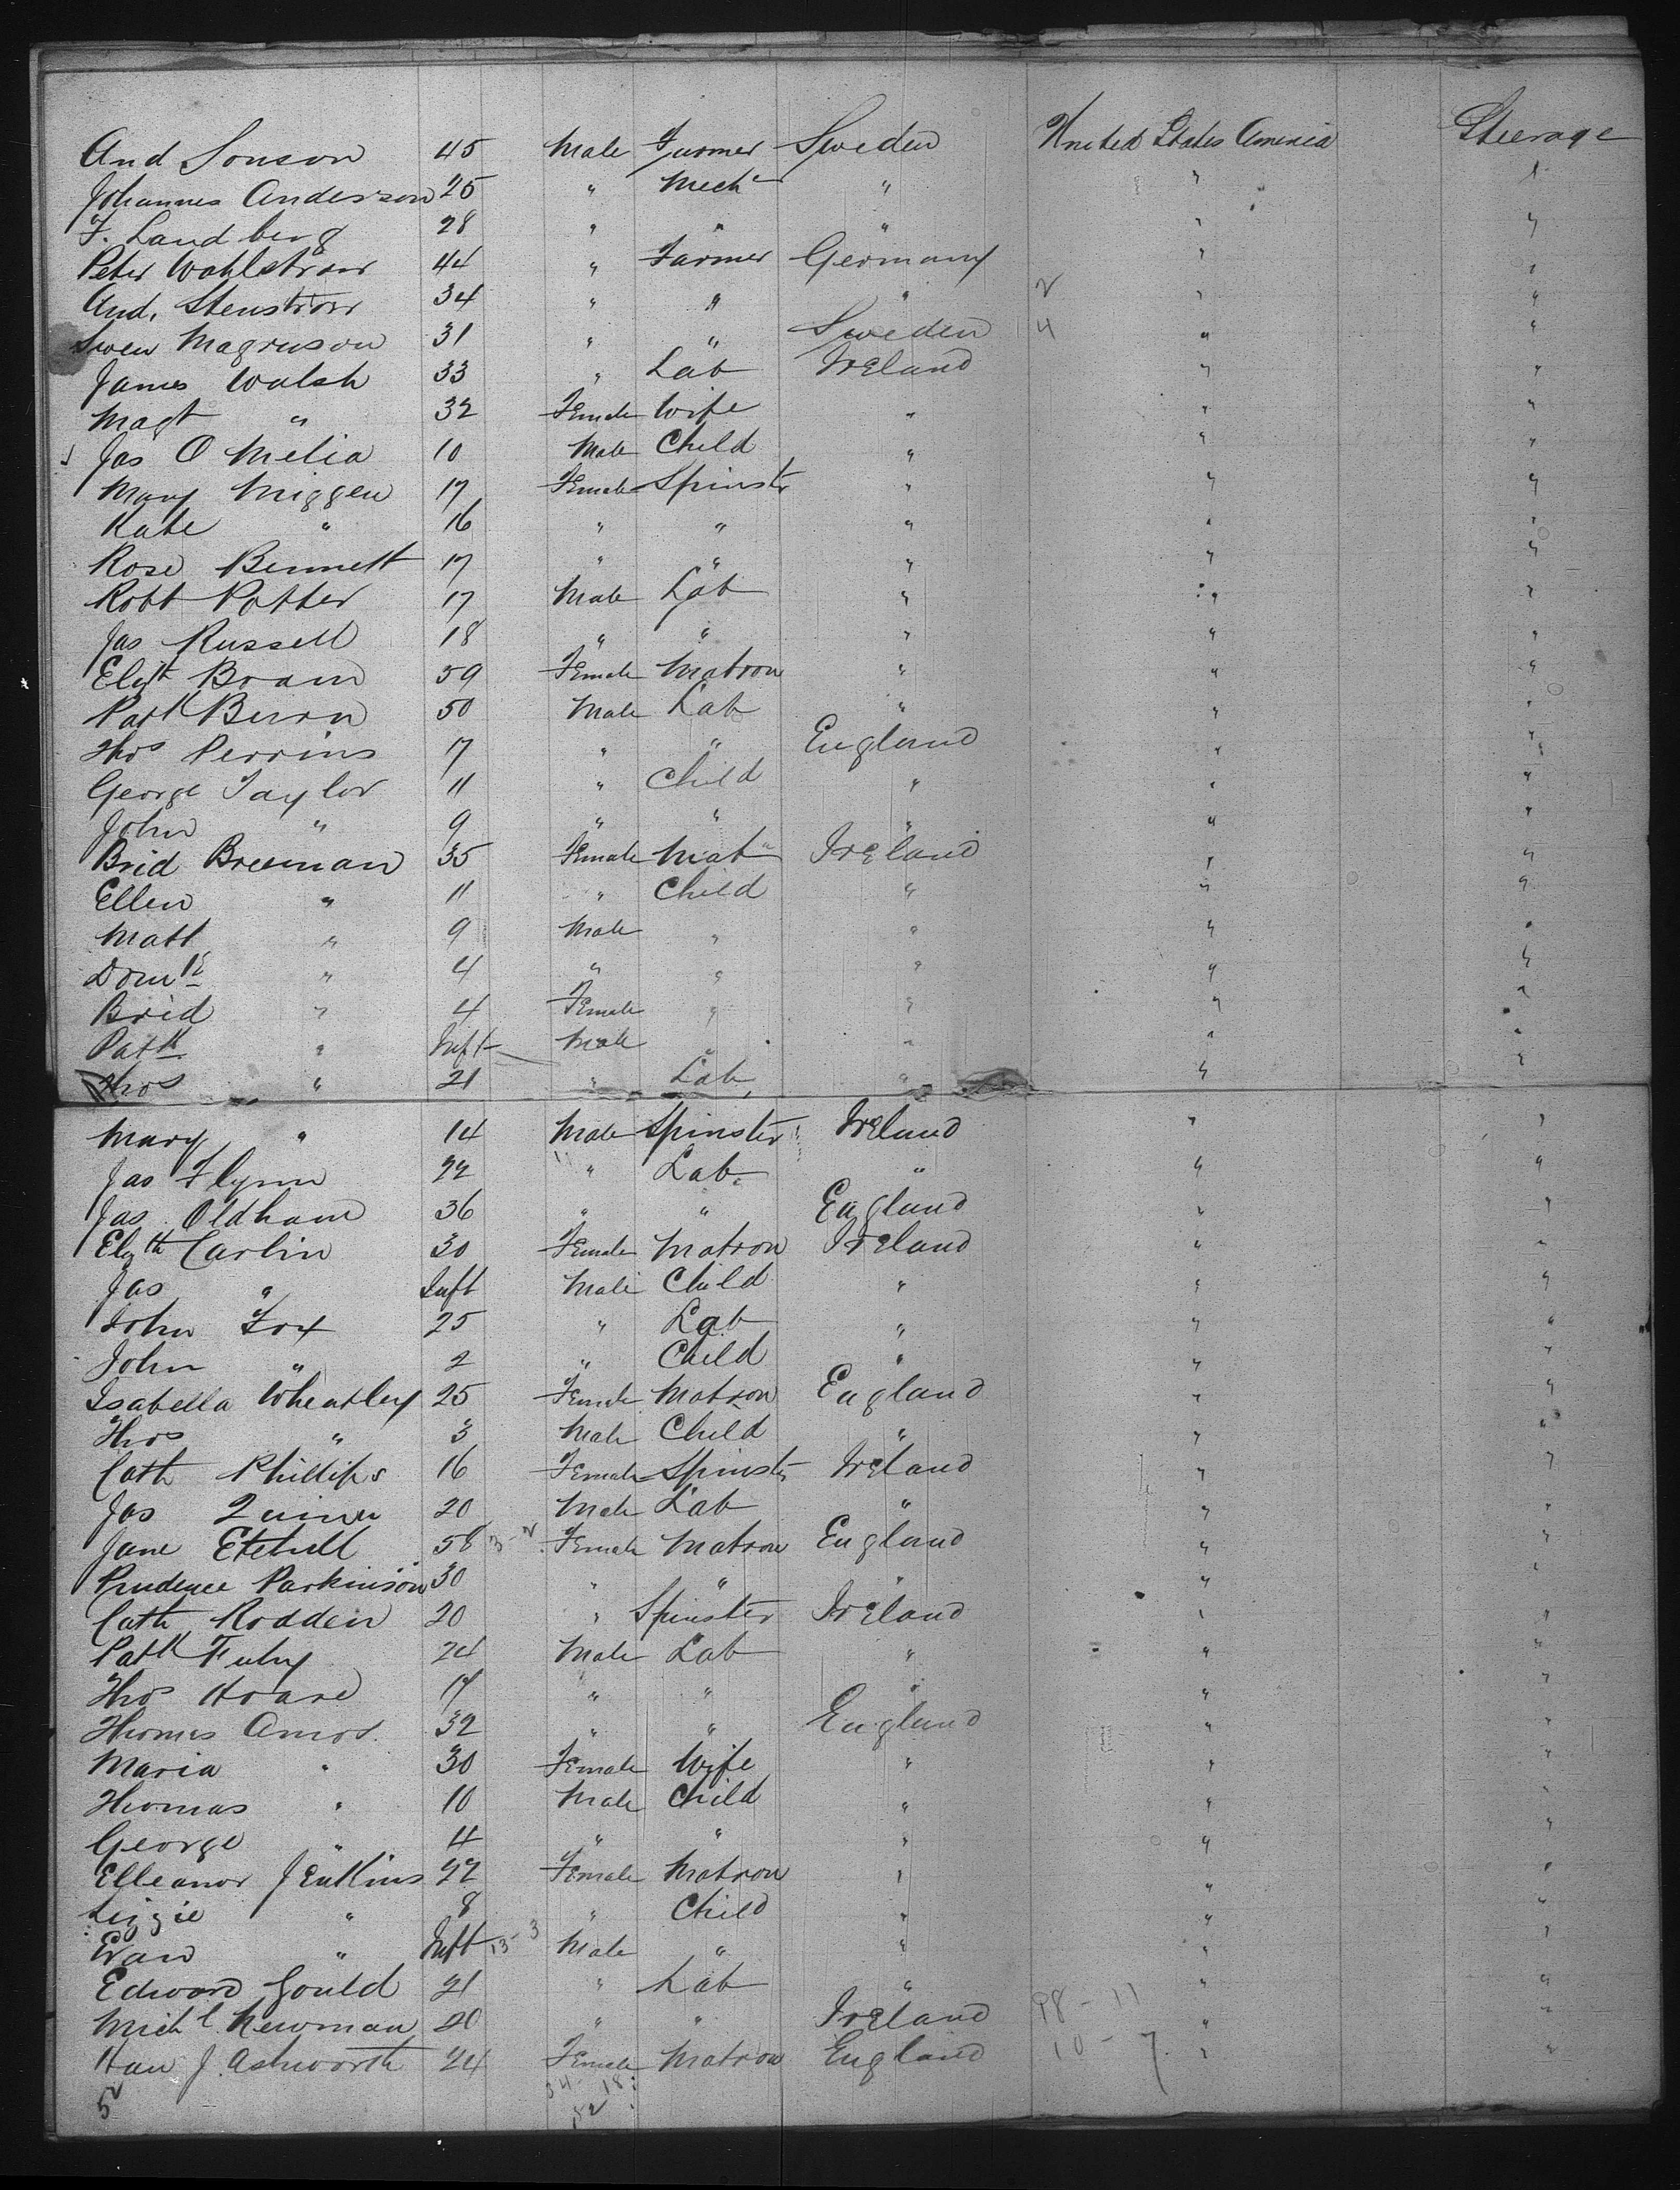 And Sonson 45 Male Farmer Sweden United States America Steerage
Johannes Anderson 25 " Mech " " "
F. Landberg 28 " " " " "
Peter Wahlstrom 44 " Farmer Germany " "
And. Stenstrom 34 " " " 2 " "
Swen Magnuson 31 " " Sweden 4 " "
James Walsh 33 " Lab Ireland " "
Magt " 32 Female Wife " " "
Jas O Melia 10 Male Child " " "
Mary Miggen 17 Female Spinstr " " "
Kate " 16 " " " " "
Rose Bennett 17 " " " " "
Robt Potter 17 Male Lab " " "
Jas Russell 18 " " " " "
Elizt Boam 59 Female Matron " " "
Patk Burn 50 Male Lab " " "
Thos Perrins 17 " " England " "
George Taylor 11 " Child " " "
John " 9 " " " " "
Brid Brennan 35 Female Mat Ireland " "
Ellen " 11 " Child " " "
Matt " 9 Male " " " "
Domk " 4 " " " " "
Brid " 4 Female " " " "
Patk " Inft Male " " " "
Thos " 21 " Lab " " "
Mary " 14 Male Spinster Ireland " "
Jas Flynn 22 " Lab " " "
Jas Oldham 36 " " England " "
Elizth Carlin 30 Female Matron Ireland " "
Jas " Inft Male Child " " "
John Fox 25 " Lab " " "
John " 2 " Child " " "
Isabella Wheatley 25 Female Matron England " "
Thos " 3 Male Child " " "
Cath Phillips 16 Female Spinstr Ireland " "
Jas Quinn 20 Male Lab " " "
Jane 58 3-2 Female Matron England " "
Prudence Parkinson 30 " " " " "
Cath Rodden 20 " Spinster Ireland " "
Patk 24 Male Lab " " "
Thos Hoare 17 " " " " "
Thomas Amos 32 " " England " "
Maria " 30 Female Wife " " "
Thomas " 10 Male Child " " "
George " 4 " " " " "
Elleanor Jenkins 22 Female Matron " " "
Lizzie " 8 " Child " " "
Evan " Inft 13-3 Male " " " "
Edward Gould 21 " Lab " " "
Michl Newman 20 " " Ireland 98-11 " "
Han J. Ashworth 24 Female Matron England 10-7 " "
52 34 18
52